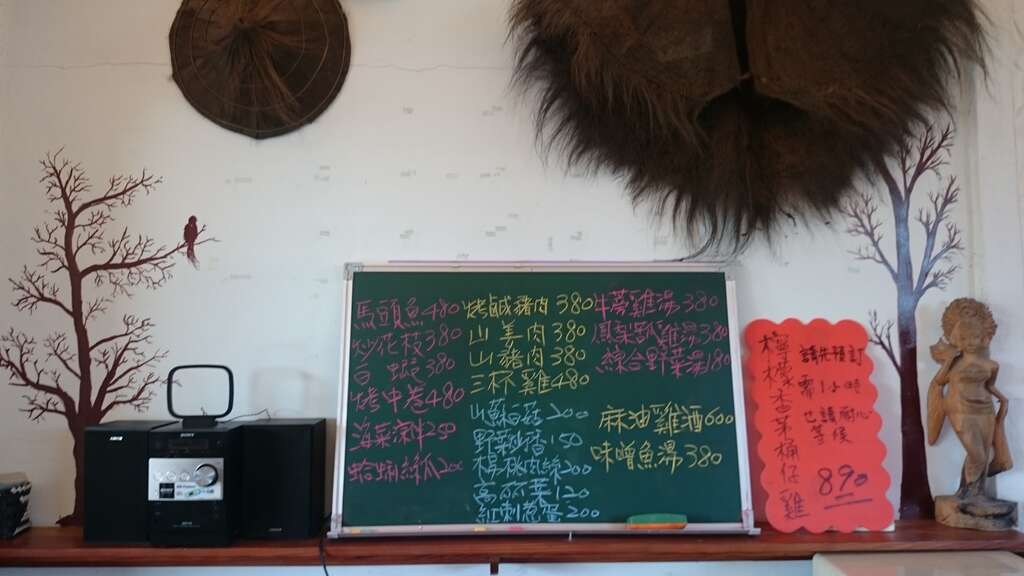 馬頭魚480
炒花枝380
白蝦380
烤中卷480
海菜涼拌250
蛤蜊絲瓜200
烤鹹豬肉 380
山羌肉 380
山豬肉 380
三杯雞 480
山蘇 200
野菜 150
200
高麗菜 120
紅刺蔥蛋 200
牛蒡雞湯 380
鳳梨 雞湯 380
綜合野菜湯180
麻油雞酒600
味噌魚湯 380
檸檬香草桶仔雞
請先預訂
需1小時
也請耐心
等候
890
SONY